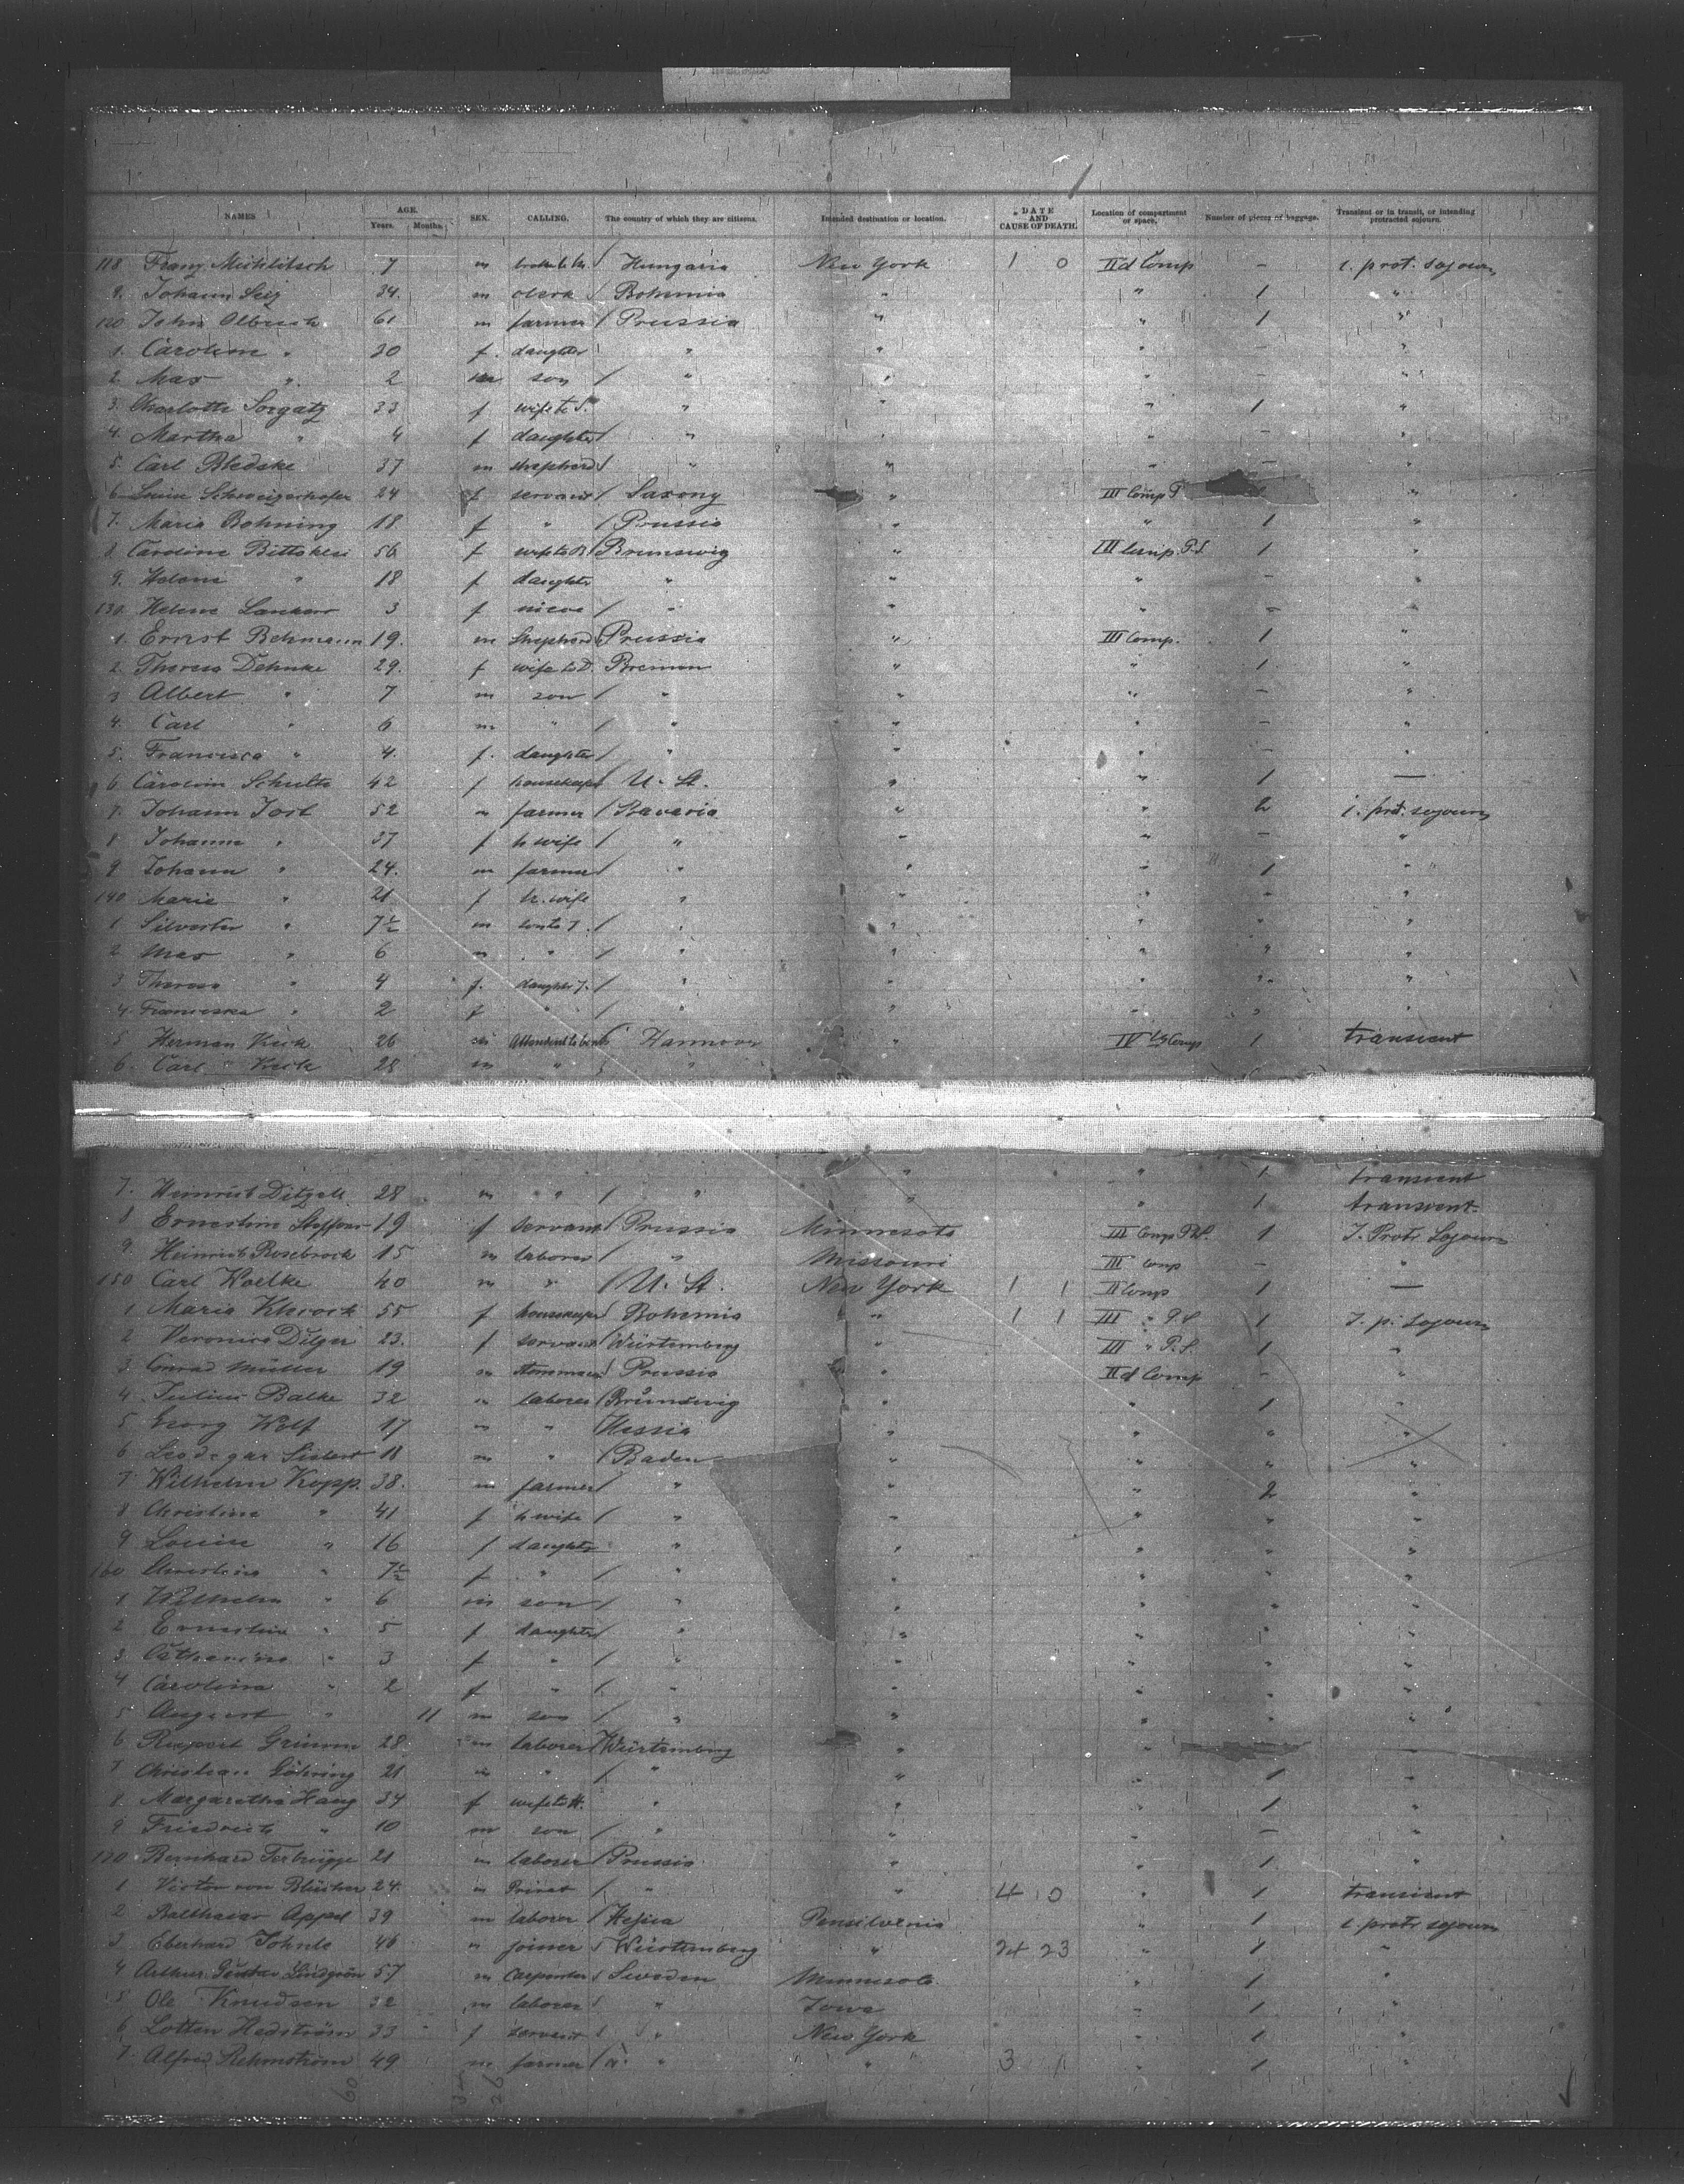 NAMES AGE. Years. Months. SEX. CALLING. The country of which they are citizens. Intended destination or location. DATE AND CAUSE OF DEATH. Location of compartment or space. Number of pieces of baggage. Transient or in transit, or intending protracted sojourn.
118 Franz Michlitsch 7 m Hungaria New York 1 0 IId Comp - i. prot. sojourn
9. Johann 34. m clerk Bohemia " " 1 "
120 John Olbrich 61 m farmer Prussia " " 1 "
1. Caroline " 30 f. daughter " " " - "
2 Max " 2 m son " " " - "
3. Charlotte Sorgatz 33 f wife to S. " " " 1 "
4. Martha " 4 f daughter " " " - "
5. Carl 37 m shepherd " " " - "
6 Louise 24 f servant Saxony " III Comp "
7. Maria Bohning 18 f " Prussia " " 1 "
8 Caroline 56 f wife to B Brunswig " III Comp. P.S. 1 "
9. Helene " 18 f daughter " " " - "
130. Helene 3 f niece " " " - "
1. Ernst Behmann 19. m Shepherd Prussia " III Comp. 1 "
2. Theresa Dehnke 29. f wife to D. Bremen " " 1 "
3 Albert " 7 m son " " " - "
4. Carl " 6 m " " " " - "
5. Francisca " 4. f. daughter " " " - "
6 Caroline Schulte 42 f housekeeper U. St. " " 1 —
7. Johann Jost 52 m farmer Bavaria " " 2 i. prot. sojourn
8 Johanna " 37 f h wife " " " - "
9 Johann " 24. m farmer " " " 1 "
140 Marie " 21 f h. wife " " " " "
1 Silvester " 7½ m son to J. " " " " "
2 Max " 6 m " " " " " "
3 Theresa " 4 f. daughter J. " " " " "
4. Franciska " 2 f " " " " " "
5 Herman Keck 26 m Hannover " IV Comp 1 transient
6. Carl Keck 28 m " " " " 1 transient
7. Heinrich Ditzell 28 m " " " " 1 transient
8 Ernestine Steffens 19 f servant Prussia Minnesota III Comp 1 I. Protr. Sojourn
9. Heinrich Rosebrock 15 m laborer " Missouri III Comp - "
150 Carl Woelke 40 m " U. St. New York 1 1 II Comp 1 —
1 Maria 55 f housekeeper Bohemia " 1 1 III " P.S 1 I. p. Sojourn
2 Veronica Dilger 23. f servant Würtemberg " III " P.S. 1 "
3. Conrad Müller 19 m Prussia " IId Comp - "
4 Julius Balke 32 m laborer Brunswig " " 1 "
5 Georg Wolf 17 m " Hessia " " " "
6 Leodegar Siebert 18 m " Baden " " " "
7 Wilhelm Kopp. 38. m farmer " " " 2 "
8 Christine " 41 f h wife " " " " "
9 Louise " 16 f daughter " " " " "
160 Christine " 7½ f " " " " " "
1 Wilhelm " 6 m son " " " " "
2 Ernestine " 5 f daughter " " " " "
3. Catharine " 3 f " " " " " "
4 Carolina " 2 f " " " " " "
5 August " 11 m son " " " " "
6 Rupert Grimm 28 m laborer Würtemberg " "
7 Christian Göhring 21 m " " " " 1 "
8. Margaretha Haug 34 f wife to H. " " " 1 "
9 Friedrich " 10 m son " " " - "
170 Bernhard Terbrügge 21 m laborer Prussia " " 1 "
1 Victor von Blücher 24. m Privat " " 4 0 " 1 transient
2 Balthasar Appel 39 m laborer Hessia Pensilvenia " 1 i. protr sojourn
3 Eberhard 46 " joiner Würtemberg " 24 23 " 1 "
4 Arthur Gustav Lindgrén 57 m Carpenter Sweden Minnesota " 1 "
5 Ole Knudsen 32 m laborer " Iowa " 1 "
6 Lotten Hedström 33 f servant " New York " 1 "
7. Alfred Rehnström 49 m farmer " " 3 1 " 1 "